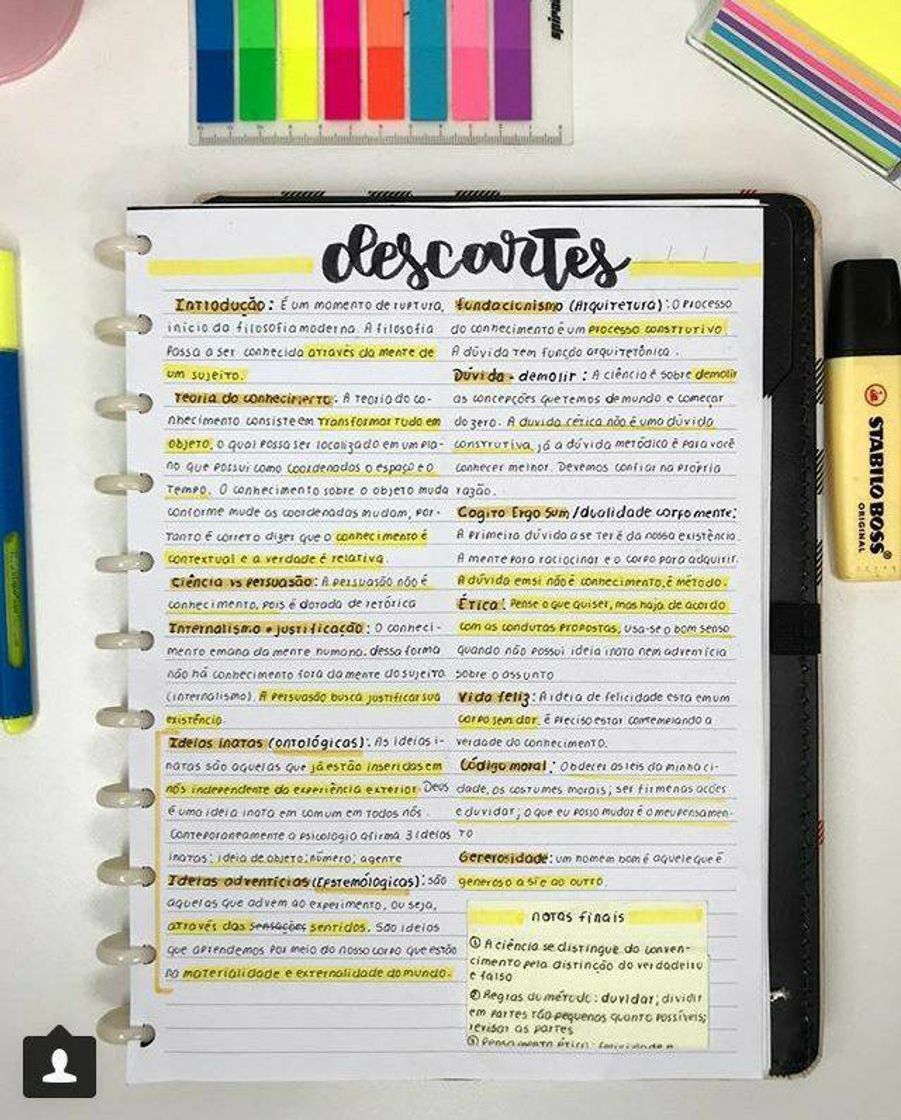 descartes
Introdução: É um momento de ruptura,
início da filosofia moderna. A filosofia
passa a ser conhecida através da mente de
um sujeito.
Teoria do conhecimento: A teoria do co-
nhecimento consiste em transformar tudo em
objeto, o qual possa ser localizado em um pla-
no que possui como coordenadas o espaço e o
tempo. O conhecimento sobre o objeto muda
conforme mude as coordenadas mudam, por-
tanto é correto dizer que o conhecimento é
contextual e a verdade é relativa.
Ciência vs persuasão: A persuasão não é
conhecimento, pois é dotada de retórica
Internalismo e justificação: O conheci-
mento emana da mente humana. dessa forma
não há conhecimento fora da mente do sujeito
(internalismo). A persuasão busca justificar sua
existência.
Ideias inatas (ontológicas): As ideias i-
natas são aquelas que já estão inseridas em
nós independente da experiência exterior. Deus
é uma ideia inata em comum em todos nós.
Contemporaneamente a psicologia afirma 3 ideias
inatas: ideia de objeto; número; agente
Ideias adventícias (Epstemológicas): são
aquelas que advem ao experimento, ou seja,
através das sensações sentidos. São ideias
que aprendemos por meio do nosso corpo que estão
na materialidade e externalidade do mundo.
fundacionismo (Arquitetura): O processo
do conhecimento é um processo construtivo.
A dúvida tem função arquitetônica.
Dúvida - demolir: A ciência é sobre demolir
as concepções que temos de mundo e começar
do zero. A duvida cética não é uma dúvida
construtiva, já a dúvida metódica é para você
conhecer melhor. Devemos confiar na própria
razão.
Cogito Ergo Sum / dualidade corpo mente:
A primeira dúvida a se ter é da nossa existência.
A mente para raciocinar e o corpo para adquirir.
A dúvida em si não é conhecimento, é método.
Ética: Pense o que quiser, mas haja de acordo
com as condutas propostas, usa-se o bom senso
quando não possui ideia inata nem adventícia
sobre o assunto
Vida feliz: A ideia de felicidade esta em um
corpo sem dor, é preciso estar contemplando a
verdade do conhecimento.
Código moral: Obedecer as leis da minha ci-
dade, os costumes morais; ser firme nas acões
e duvidar; o que eu posso mudar é o meu pensamen-
to
Generosidade: um homem bom é aquele que é
generoso a si e ao outro.
notas finais
① A ciência se distingue do conven-
cimento pela distinção do verdadeiro
e falso
② Regras do método: duvidar; dividir
em partes tão pequenas quanto possíveis;
revisar as partes
③ Pensamento ético:
STABILO BOSS
ORIGINAL